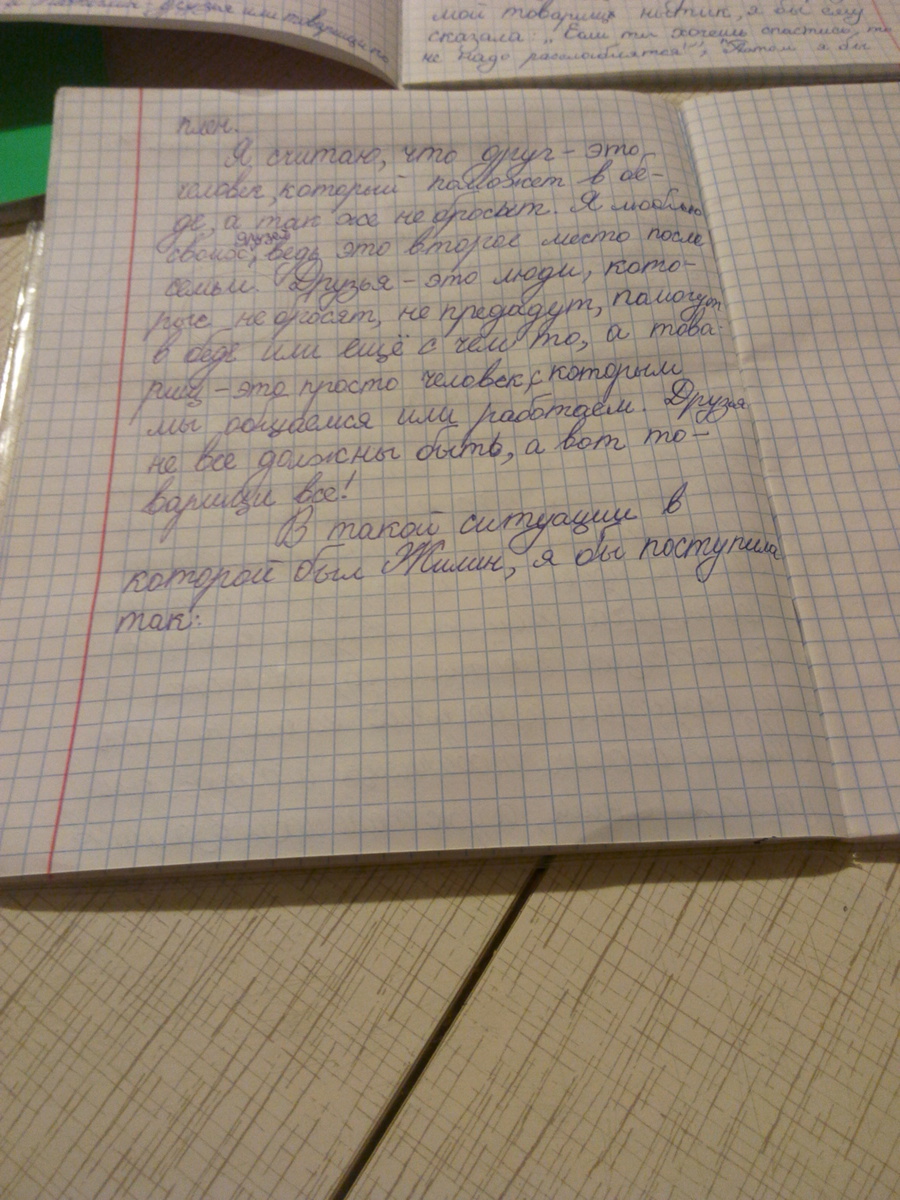 мой товарищ нытик, я бы ему
сказала: „Если ты хочешь спастись, то
не надо расслаблятся!", Потом я бы
друзья или товарищи по
плен.
Я считаю, что друг - это
человек, который поможет в бе-
де, а так же не бросит. Я люблю
своих друзей, ведь это второе место после
семьи. Друзья - это люди, кото-
рые не бросят, не предадут, памогут
в беде или ещё с чем то, а това-
рищ - это просто человек, с которым
мы общаемся или работаем. Друзья
не все должны быть, а вот то-
варищи все!
В такой ситуации в
которой был Жилин, я бы поступила
так: